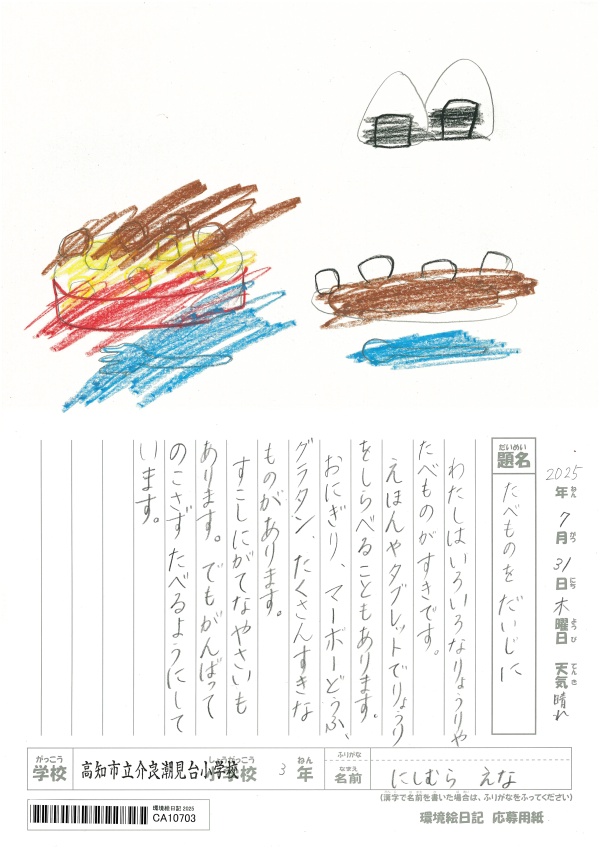 2025年ねん7月がつ31日にち木曜日ようび 天気てんき晴れ
だいめい
題名
たべものを だいじに
わたしはいろいろなりょうりや
たべものがすきです。
えほんやタブレットでりょうり
をしらべることもあります。
おにぎり、マーボーどうふ、
グラタン、たくさんすきな
ものがあります。
すこしにがてなやさいも
あります。でもがんばって
のこさずたべるようにして
います。
がっこう
学校
高知市立介良潮見台小学校
しょうがっこう
小学校
3年ねん
ふりがな
なまえ
名前
にしむら えな
(漢字で名前を書いた場合は、ふりがなをふってください)
環境絵日記 2025
CA10703
環境絵日記 応募用紙